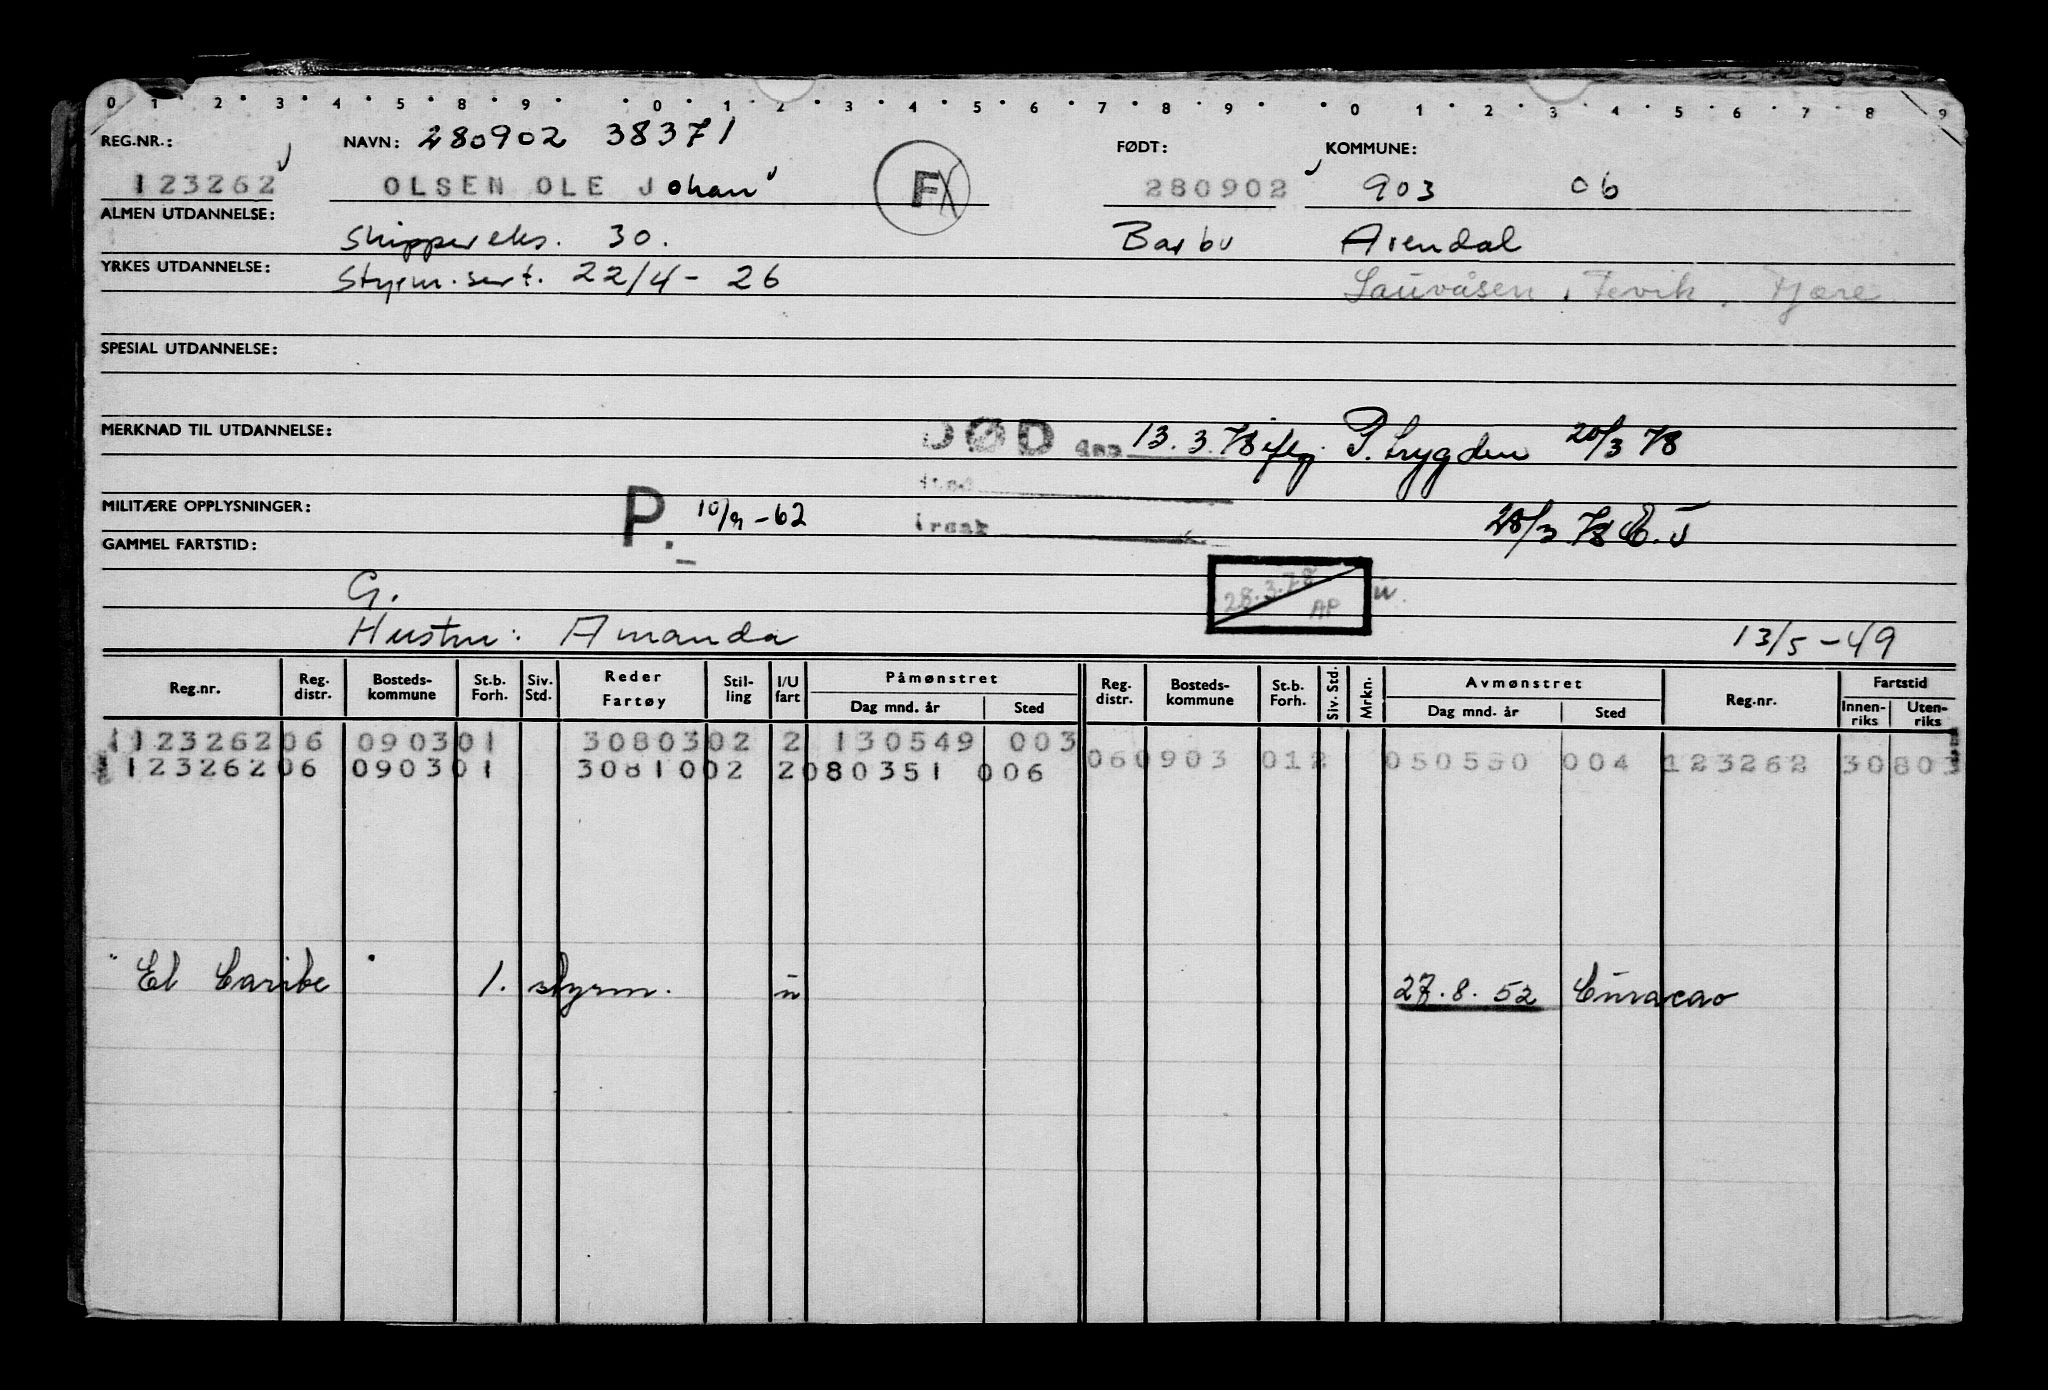 0 1 2 3 4 5 6 8 9 0 1 2 3 4 5 6 7 8 9 0 1 2 3 4 5 6 7 8 9
REG.NR.: NAVN: 280902 38371 FØDT: KOMMUNE:
123262 OLSEN OLE Johan F 280902 903 06
ALMEN UTDANNELSE: Skippereks. 30. Barbu Arendal
YRKES UTDANNELSE: Styrm.sert. 22/4-26 Sauvåsen, Fevik, Fjære
SPESIAL UTDANNELSE:
MERKNAD TIL UTDANNELSE: DØD den 13.3.78 iflg. P. trygden 20/3 78
MILITÆRE OPPLYSNINGER: P. 10/9-62 28/3 78
GAMMEL FARTSTID:
28.3.78 AP
G.
Hustru: Amanda 13/5-49
Reg.nr. Reg. distr. Bosteds-kommune St.b. Forh. Siv. Std. Reder Fartøy Stil-ling I/U fart Påmønstret Dag mnd. år Sted Reg. distr. Bosteds-kommune St.b. Forh. Siv. Std. Mrkn. Avmønstret Dag mnd. år Sted Reg.nr. Fartstid Innen-riks Uten-riks
112326206 090301 3080302 2 130549 003
060903 012 050550 004 123262 30803
112326206 090301 3081002 2080351 006
"El Caribe" 1. styrm. u 27.8.52 Curacao